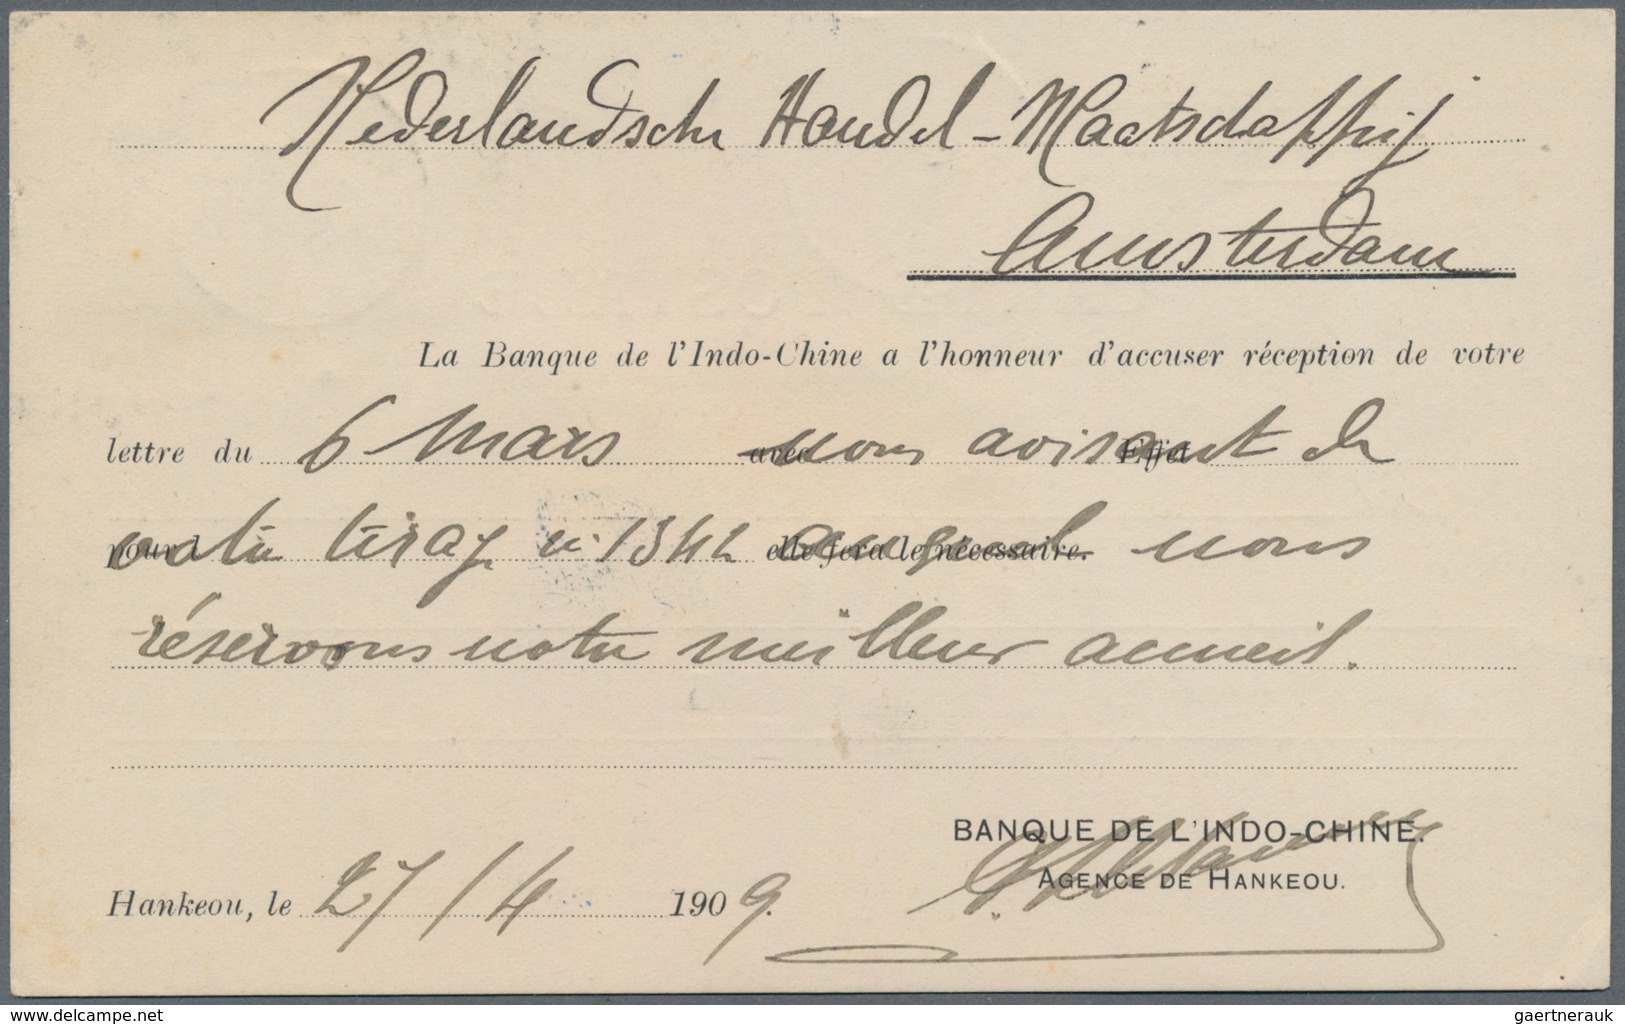 Nederlandsche Handel-Maatschappij
Amsterdam
La Banque de l'Indo-Chine a l'honneur d'accuser réception de votre
lettre du 6 Mars avec nous avisant de Effet
pour votre tirage n° 1342 elle fera le nécessaire. auquel nous
réservons notre meilleur accueil.
BANQUE DE L'INDO-CHINE.
AGENCE DE HANKEOU.
Hankeou, le 27/4 1909.
www.delcampe.net
gaertnerauk